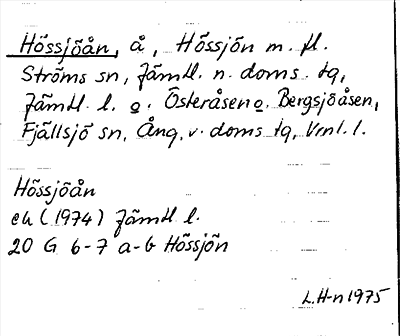 Hössjöån, å, Hössjön m. fl.
Ströms sn, Jämtl. n. doms. tq,
Jämtl. l. o. Österåsen o. Bergsjöåsen,
Fjällsjö sn, Ång. v. doms tq, Vrnl. l.
Hössjöån
ek (1974) Jämtl l.
20 G 6-7 a-b Hössjön
L.H-n 1975